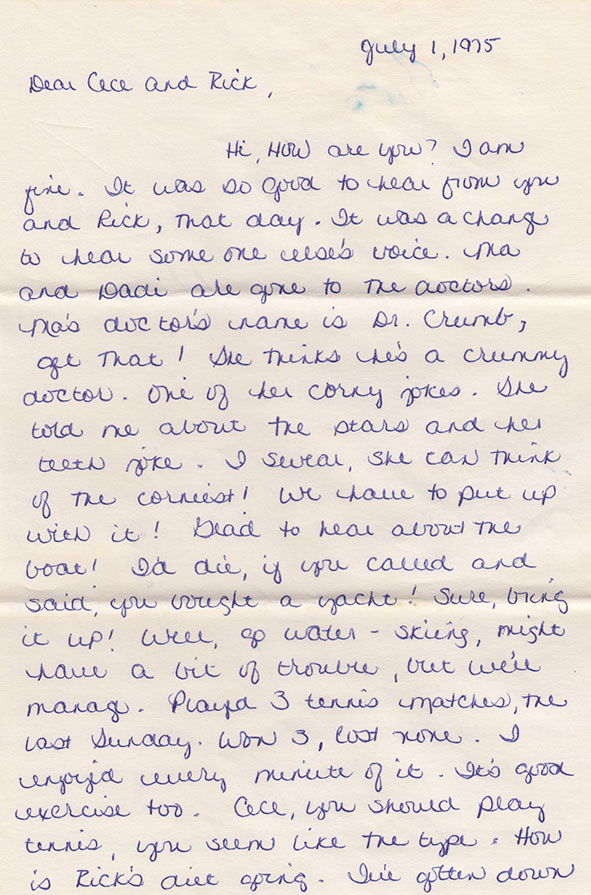 July 1, 1975
Dear Cece and Rick,
Hi, How are you? I am
fine. It was so good to hear from you
and Rick, that day. It was a change
to hear some one else's voice. Ma
and Dadi are gone to the doctors.
Ma's doctor's name is Dr. Crumb,
get that! She thinks he's a crummy
doctor. One of her corny jokes. She
told me about the stars and her
teeth joke. I swear, she can think
of the corniest! We have to put up
with it! Glead to hear about the
boat! I'd die, if you called and
said, you bought a yacht! Sure, bring
it up! We'll, go water-skiing, might
have a bit of trouble, but we'll
manag. Playd 3 tennis matches, the
last Sunday. Won 3, lost none. I
enjoyd every minute of it. It's good
exercise too. Cece, you should play
tennis, you seem like the type. How
is Rick's diet going. I've gotten down